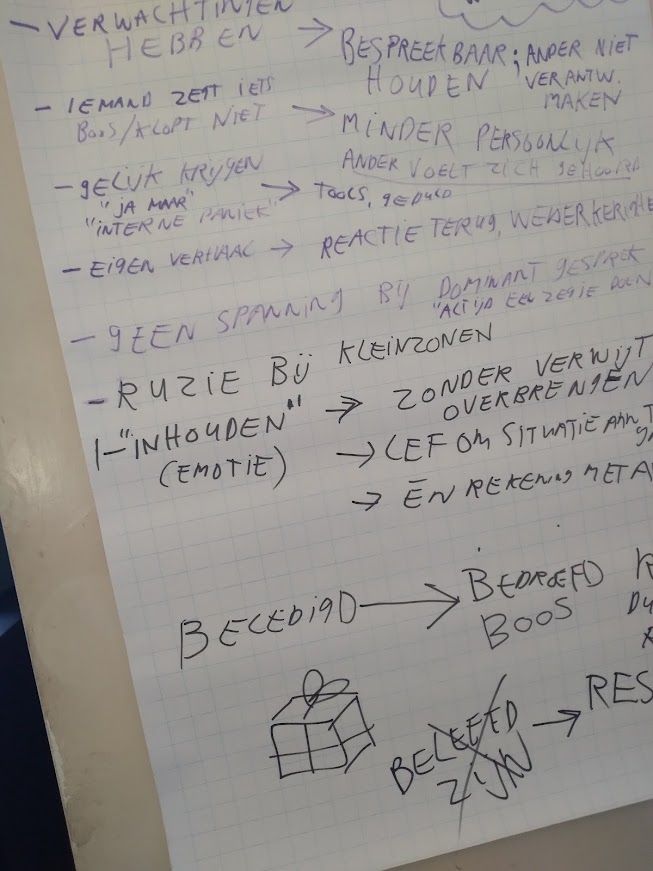 - VERWACHTINGEN
HEBBEN → BESPREEKBAAR; ANDER NIET
HOUDEN VERANTW.
MAKEN
- IEMAND ZEGT IETS
BOOS/KLOPT NIET → MINDER PERSOONLIJK
ANDER VOELT ZICH GEHOORD
- GELIJK KRIJGEN → TOOLS, GEDULD
"JA MAAR"
"INTERNE PANIEK"
- EIGEN VERHAAL → REACTIE TERUG, WEDERKERIGHE
- GEEN SPANNING BIJ DOMINANT GESPREK
"ALTIJD EEN ZEGJE DOEN
- RUZIE BIJ KLEINZONEN
- "INHOUDEN" → ZONDER VERWIJT
OVERBRENGEN
(EMOTIE) → LEF OM SITUATIE AAN T
→ ÉN REKENING MET A
BELEDIGD → BEDROEFD
BOOS
BELEEFD
ZIJN → RES